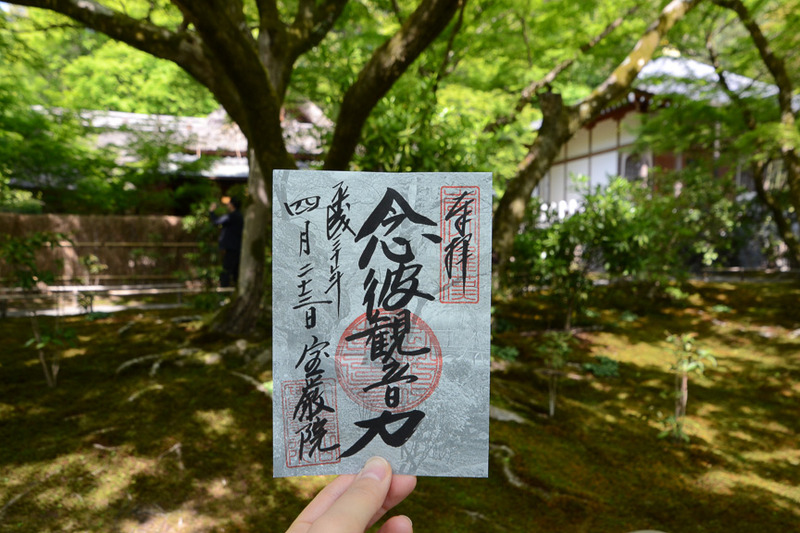 奉拝
念彼觀音力
平成三十年
四月二十三日
宝厳院